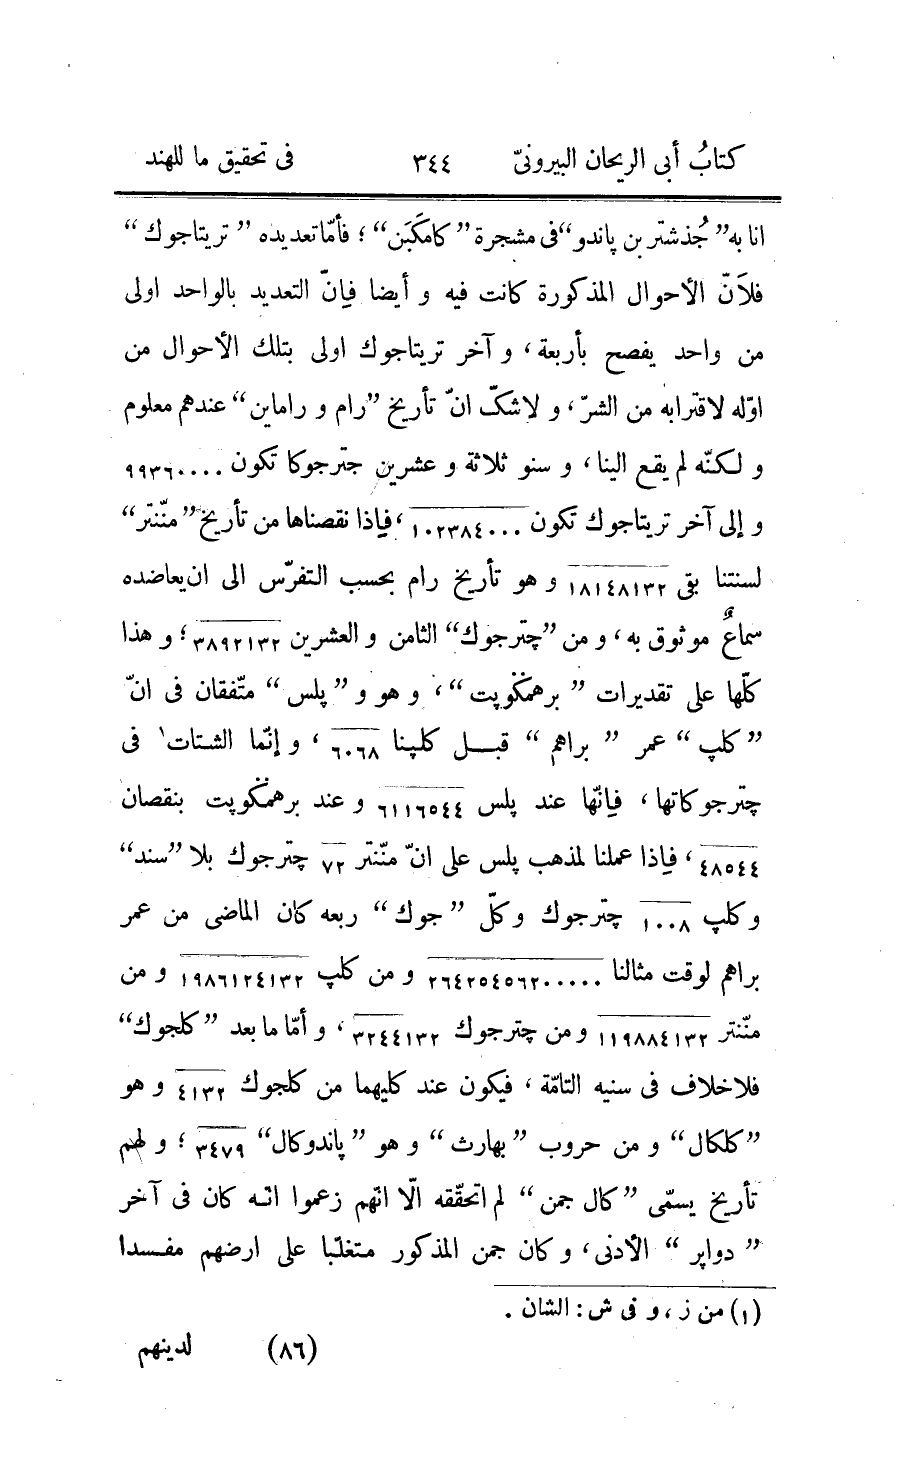 كتابُ أبى الريحان البيرونىّ ٣٤٤ فى تحقيق ما للهند
انا به ”جُذشتر بن پاندو“ فى مشجرة ”كامكَيَن“ ؛ فأمّا تعديده ”تريتاجوك“
فلأنّ الأحوال المذكورة كانت فيه و أيضا فإنّ التعديد بالواحد اولى
من واحد يفصح بأربعة، و آخر تريتاجوك اولى بتلك الأحوال من
اوّله لاقترابه من الشرّ، و لاشكّ انّ تأريخ ”رام و راماين“ عندهم معلوم
و لكنّه لم يقع الينا، و سنو ثلاثة و عشرين جترجوكا تكون ٩٩٣٦٠٠٠٠
و إلى آخر تريتاجوك تكون ١٠٢٣٨٤٠٠٠، فإذا نقصناها من تأريخ ”منّنتر“
لسنتنا بقى ١٨١٤٨١٣٢ و هو تأريخ رام بحسب التفرّس الى ان يعاضده
سماعٌ موثوق به، و من ”چترجوك“ الثامن و العشرين ٣٨٩٢١٣٢؛ و هذا
كلّها على تقديرات ”برهمگوپت“، و هو و ”پلس“ متّفقان فى انّ
”كلپ“ عمر ”براهم“ قبل كلپنا ٦٠٦٨، و إنّما الشتات١ فى
چترجوكاتها، فإنّها عند پلس ٦١١٦٥٤٤ و عند برهمگوپت بنقصان
٤٨٥٤٤، فإذا عملنا لمذهب پلس على انّ منّنتر ٧٢ چترجوك بلا ”سند“
و كلپ ١٠٠٨ چترجوك و كلّ ”جوك“ ربعه كان الماضى من عمر
براهم لوقت مثالنا ٢٦٤٢٥٤٥٦٢٠٠٠٠٠ و من كلپ ١٩٨٦١٢٤١٣٢ و من
منّنتر ١١٩٨٨٤١٣٢ و من چترجوك ٣٢٤٤١٣٢، و أمّا ما بعد ”كلجوك“
فلاخلاف فى سنيه التامّة، فيكون عند كليهما من كلجوك ٤١٣٢ و هو
”كلكال“ و من حروب ”بهارث“ و هو ”پاندوكال“ ٣٤٧٩؛ و لهم
تأريخ يسمّى ”كال جمن“ لم اتحقّقه الّا انّهم زعموا انّه كان فى آخر
”دواپر“ الأدنى، و كان جمن المذكور متغلّبا على ارضهم مفسدا
(١) من ز، و فى ش: الشان.
(٨٦) لدينهم